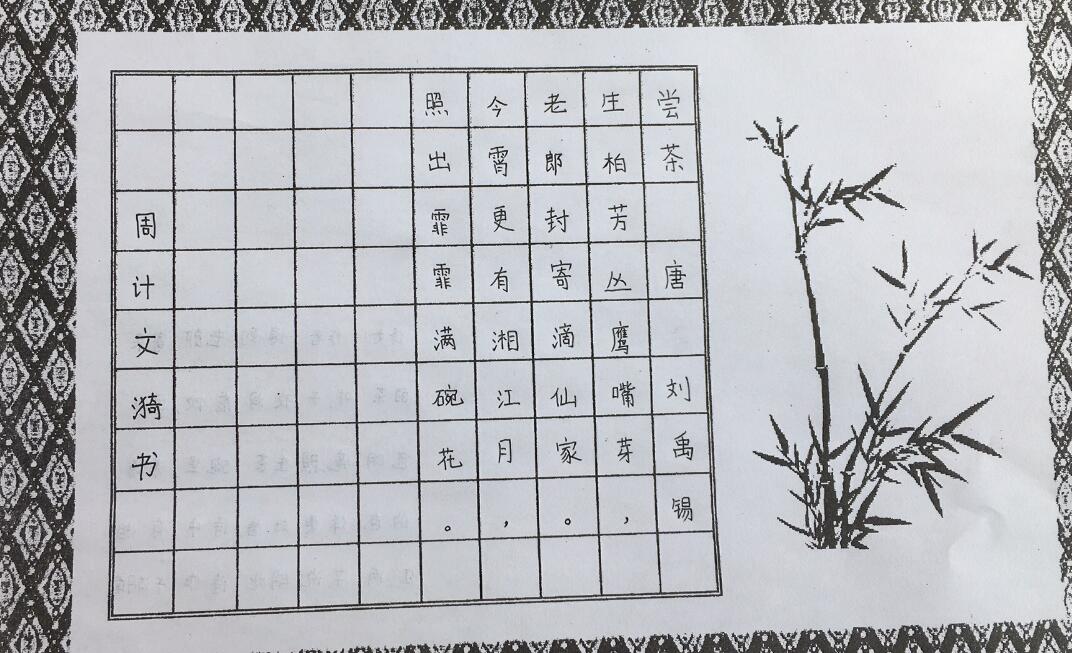 尝茶 唐 刘禹锡
生柏芳丛鹰嘴芽，
老郎封寄滴仙家。
今霄更有湘江月，
照出霏霏满碗花。
周计文漪书